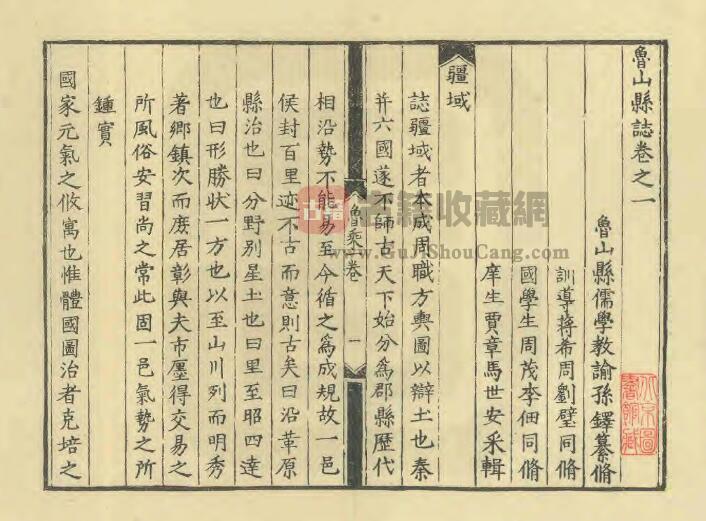 魯山縣誌卷之一
魯山縣儒學教諭孫鐸纂脩
訓導蔣希周劉璧同脩
國學生周茂李佃同脩
庠生賈章馬世安采輯
疆域
誌疆域者本成周職方輿圖以辯土也秦
幷六國遂不師古天下始分爲郡縣歷代
魯乘一卷
一
相沿勢不能易至今循之爲成規故一邑
侯封百里迹不古而意則古矣曰沿革原
縣治也曰分野別星土也曰里至昭四達
也曰形勝狀一方也以至山川列而明秀
著鄉鎮次而庶居彰與夫市廛得交易之
所風俗安習尚之常此固一邑氣勢之所
鍾實
國家元氣之攸寓也惟體國圖治者克培之
古籍收藏網
www.GuJiShouCang.com